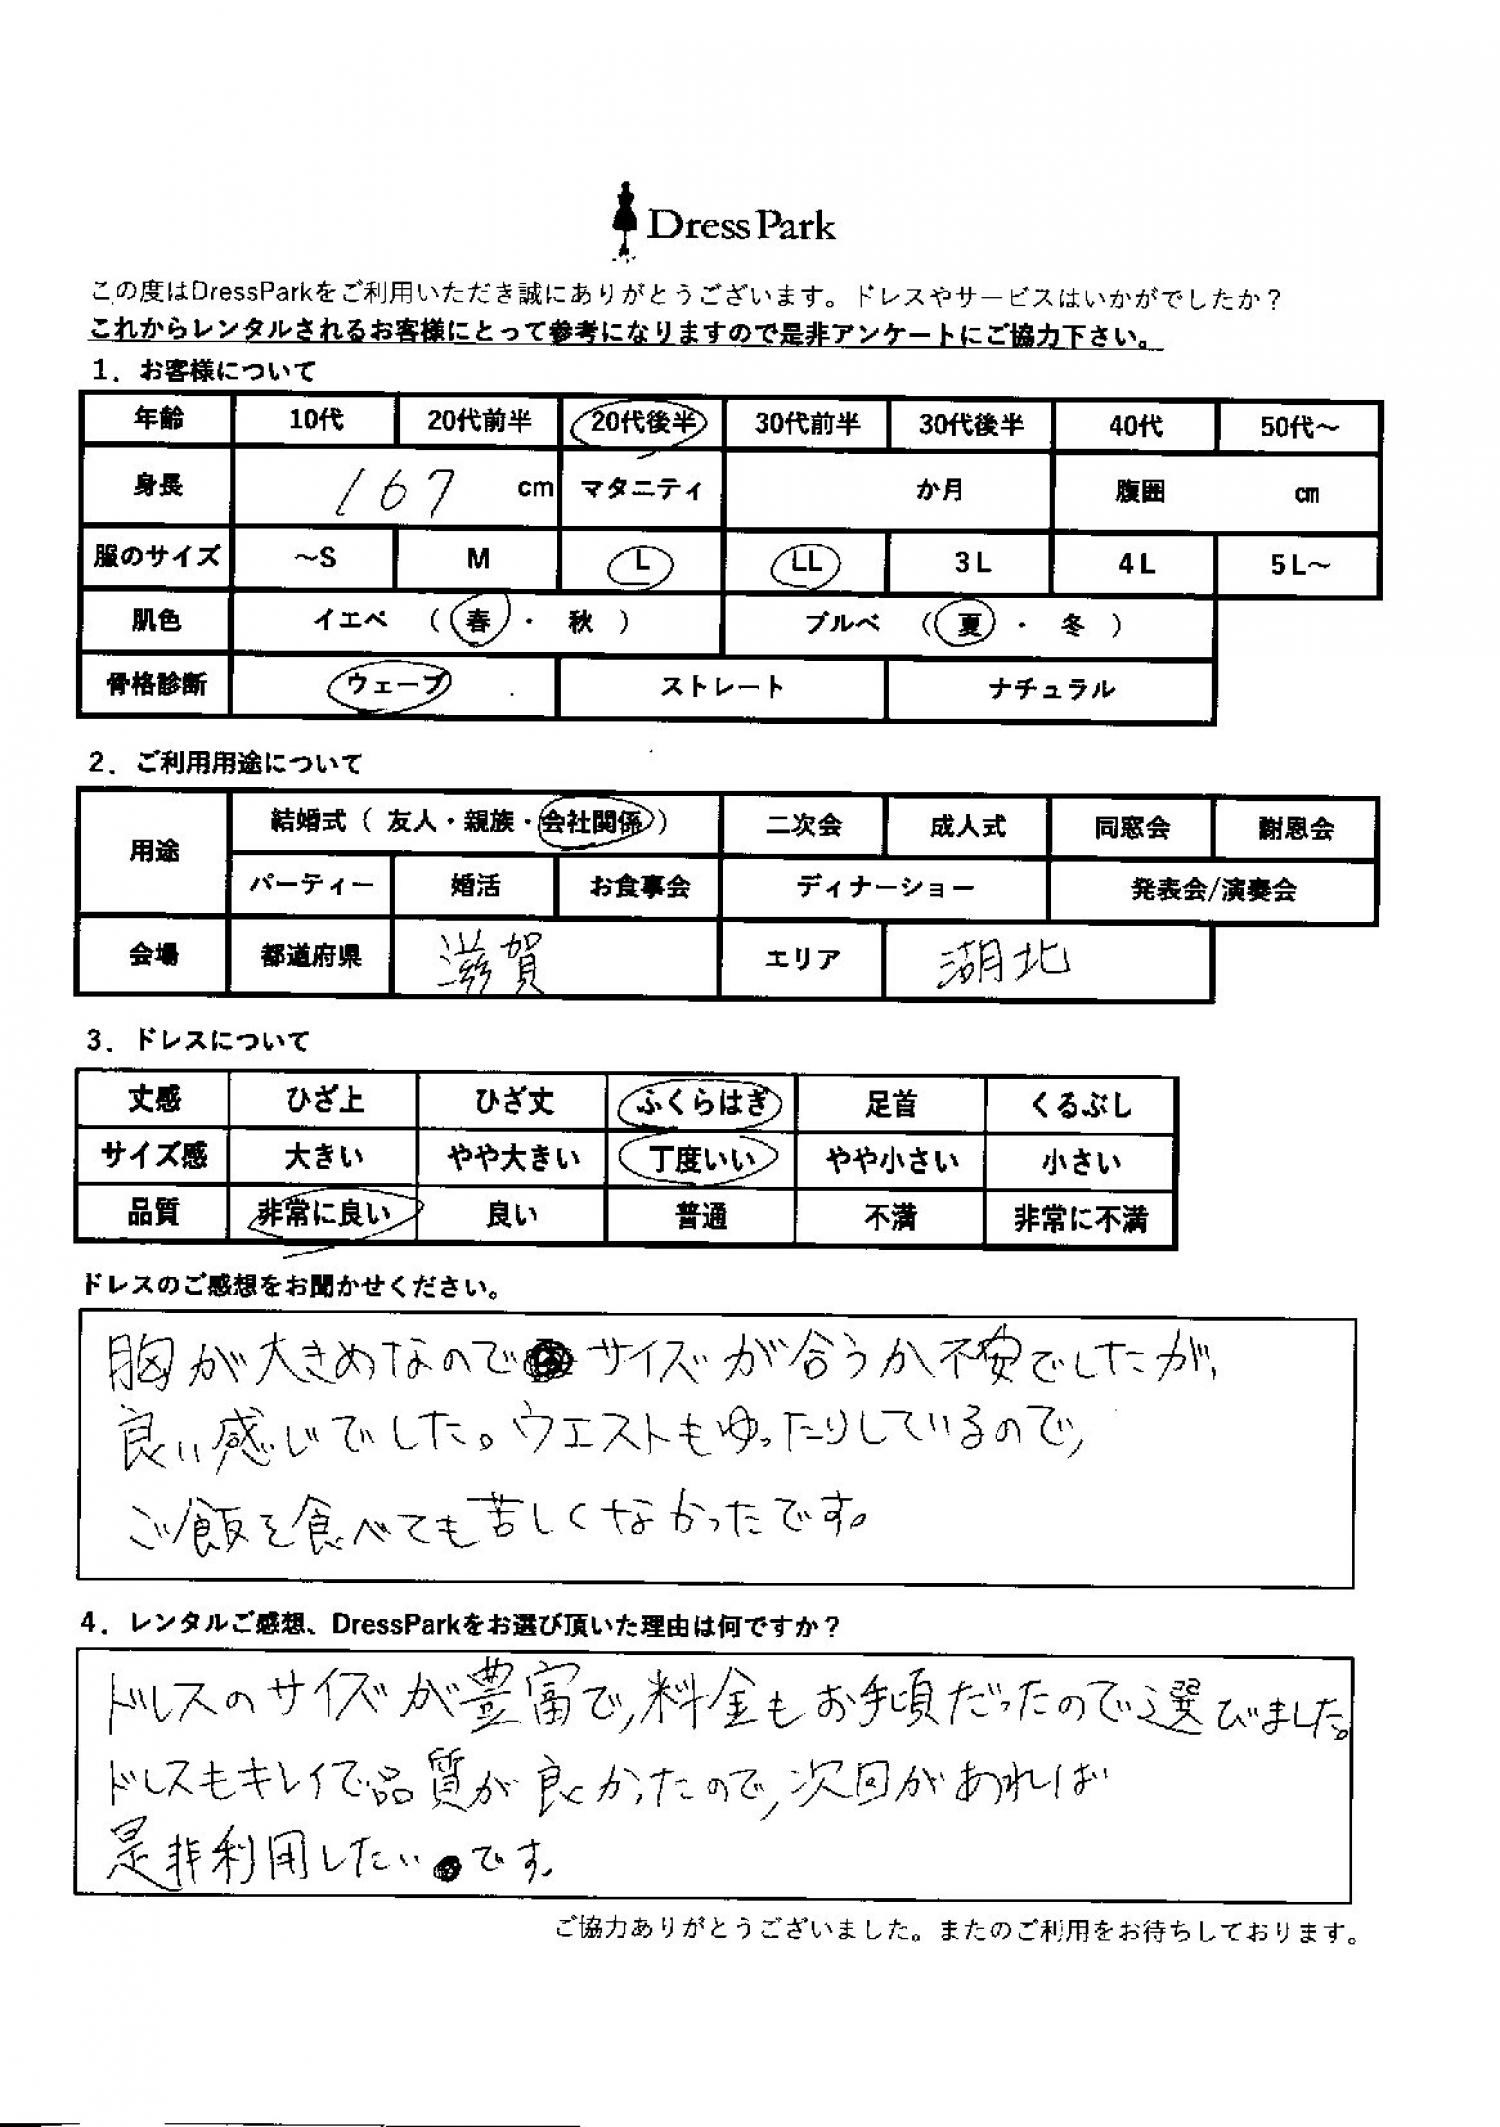 Dress Park
この度はDressParkをご利用いただき誠にありがとうございます。ドレスやサービスはいかがでしたか？
これからレンタルされるお客様にとって参考になりますので是非アンケートにご協力下さい。
1．お客様について
年齢 10代 20代前半 20代後半 30代前半 30代後半 40代 50代～
身長 167 cm マタニティ か月 腹囲 cm
服のサイズ ～S M L LL 3L 4L 5L～
肌色 イエベ （ 春 ・ 秋 ） ブルベ （ 夏 ・ 冬 ）
骨格診断 ウェーブ ストレート ナチュラル
2．ご利用用途について
用途 結婚式（ 友人・親族・会社関係 ） 二次会 成人式 同窓会 謝恩会
パーティー 婚活 お食事会 ディナーショー 発表会/演奏会
会場 都道府県 滋賀 エリア 湖北
3．ドレスについて
丈感 ひざ上 ひざ丈 ふくらはぎ 足首 くるぶし
サイズ感 大きい やや大きい 丁度いい やや小さい 小さい
品質 非常に良い 良い 普通 不満 非常に不満
ドレスのご感想をお聞かせください。
胸が大きめなのでサイズが合うか不安でしたが、
良い感じでした。ウエストもゆったりしているので、
ご飯を食べても苦しくなかったです。
4．レンタルご感想、DressParkをお選び頂いた理由は何ですか？
ドレスのサイズが豊富で、料金もお手頃だったので選びました。
ドレスもキレイで品質が良かったので、次回があれば
是非利用したいです。
ご協力ありがとうございました。またのご利用をお待ちしております。